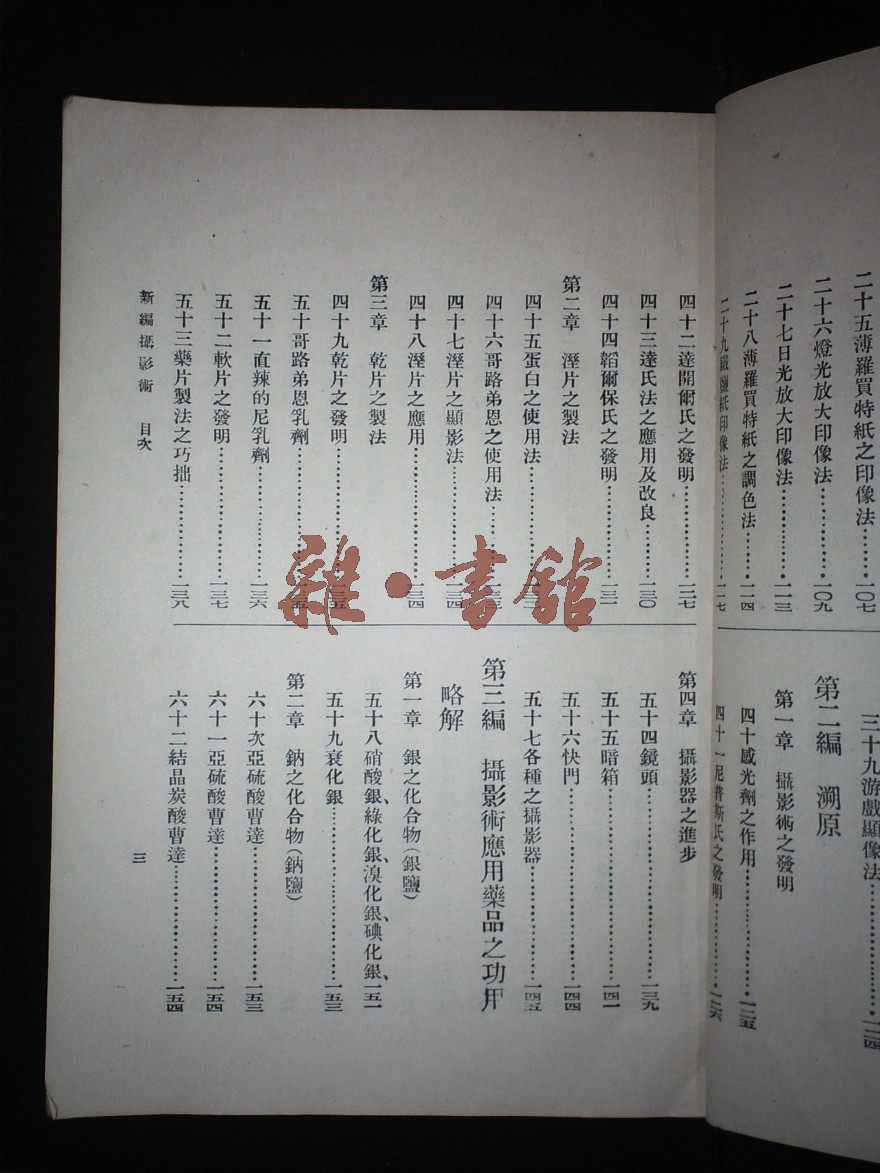 二十五薄羅買特紙之印像法……一〇七
二十六燈光放大印像法……一〇九
二十七日光放大印像法……一一三
二十八薄羅買特紙之調色法……一一四
二十九鹽紙印像法……一一七
三十九游戲顯像法……一二四
第二編 溯原
第一章 攝影術之發明
四十感光劑之作用……一二五
四十一尼普斯氏之發明……一二六
四十二達開爾氏之發明……一二七
四十三達氏法之應用及改良……一三〇
四十四韜爾保氏之發明……一三一
第二章 溼片之製法
四十五蛋白之使用法……一三
四十六哥路弟恩之使用法……
四十七溼片之顯影法……一三四
四十八溼片之應用……一三四
第三章 乾片之製法
四十九乾片之發明……一三五
五十哥路弟恩乳劑……
五十一直辣的尼乳劑……一三六
五十二軟片之發明……一三七
五十三藥片製法之巧拙……一三八
第四章 攝影器之進步
五十四鏡頭……一三九
五十五暗箱……一四一
五十六快門……一四四
五十七各種之攝影器……一四五
第三編 攝影術應用藥品之功用
略解
第一章 銀之化合物(銀鹽)
五十八硝酸銀、綠化銀、溴化銀、碘化銀、一五一
五十九衰化銀……一五三
第二章 鈉之化合物(鈉鹽)
六十次亞硫酸曹達……一五三
六十一亞硫酸曹達……一五四
六十二結晶炭酸曹達……一五四
新編攝影術 目次
三
雜·書館